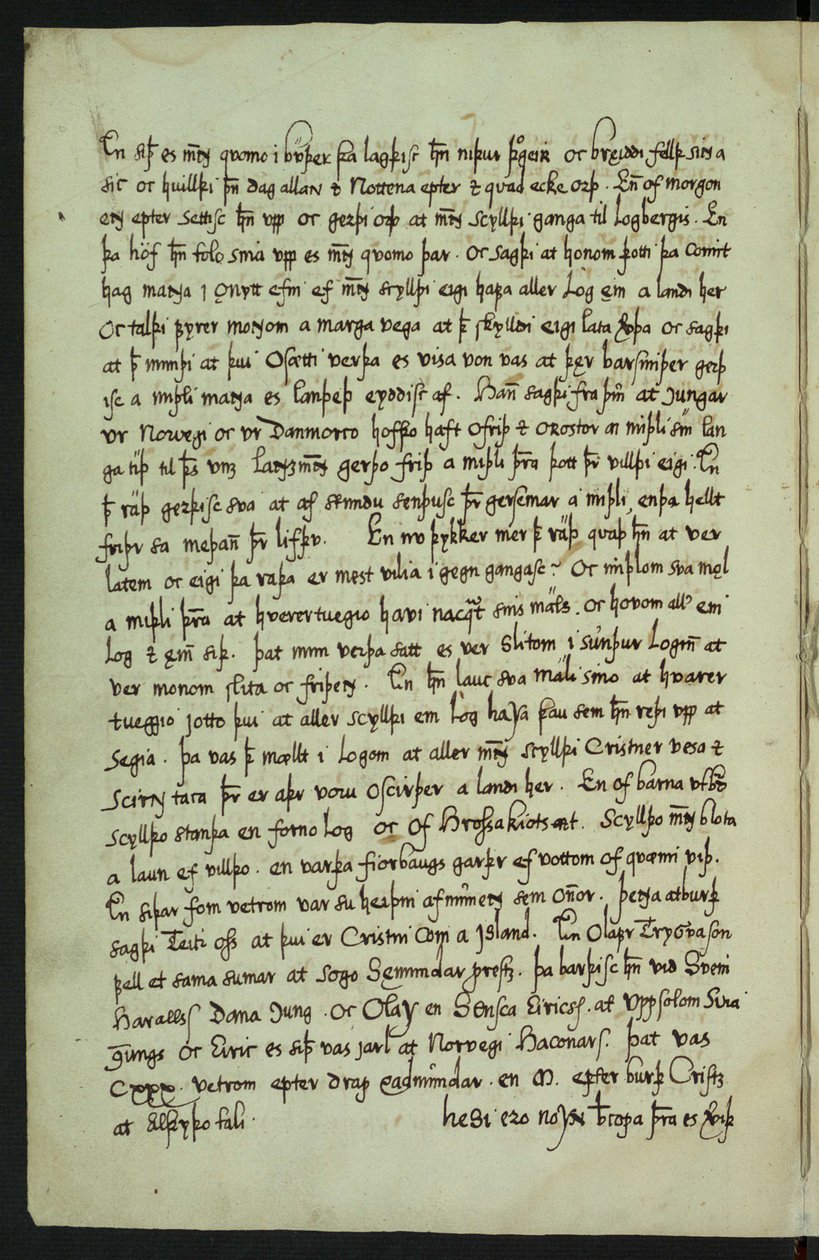 En siþ es m̅n qvomo i bvþer þa lagþisc h̅n niþur þᵒgeiʀ oc breiddi felld sinn a
sic oc huillþi þn̅ dag allan ⁊ Nottena epter ⁊ quaþ ecke orþ. En̅ of morgon
enn epter settisc h̅n upp oc gerþi orþ at m̅n scylldi ganga til Logbergis. En
þa hóf h̅n tolo sina upp es m̅n qvomo þar. Oc sagþi at honom þotti þa comit
hag manna i ónytt efni ef m̅n scylldi eigi hafa aller Lög ein a landi her
Oc talþi fyrer monnom a marga vega at þ̅ skylldi eigi lata verþa oc sagþi
at þ̅ mundi at þui Osætti verþa es visa von vas at þær barsmiþer gerþ
isc a miþli manna es lanþeþ eyddisc af. Han̅ sagþi fra þui at kungar
ur Norvegi oc ur Danmorco hofþo haft ofriþ ⁊ orostor a miþli sin̅ lan
ga tiþ til þ̅s unz Landzm̅n gerþo friþ a miþli þ̅ra þott þ̅r villdi eigi. En
þ̅ ráþ gerþisc sva at af stundu sendusc þ̅r gersemar a miþli, enþa hellt
friþr sa meþan̅ þ̅r lifþu. En nu þykker mer þ̅ ráþ quaþ h̅n at ver
latem oc eigi þa raþa er mest vilia i gegn gangasc. Oc miþlom sva mæl
a miþli þ̅ra at hverertuegio havi nacqvat sins máls. Oc hovom all' ein
Log ⁊ ein̅ siþ. Þat mun verþa satt es ver slitom i sunþur Login̅ at
ver monom slita oc friþenn. En h̅n lauc sva máli sino at hvarer
tueggio jotto þui at aller scylldi ein Lög hafa þau sem h̅n reþi upp at
segia. Þa vas þ̅ mællt i Logom at aller m̅n scylldi Cristner vesa ⁊
scirn taca þ̅r er aþr voru Oscirþer a landi her. En of barna utburþ
scylldo standa en forno log oc of Hrossakiotsat. Scylldo m̅n blota
a laun ef villdo. en varþa fiorbaugs garþr ef vottom of quæmi viþ.
En siþar fom vetrom var su heiþni afnumen sem onnor. Þenna atburþ
sagþi Teitr oss at þui er Cristni com a Island. En Olafr Tryggvason
fell et sama sumar at sogo Sæmundar prestz. Þa barþisc h̅n vid Svein
Harallss Dana kung. Oc Olaf en Sænsca Eiricss. at Uppsolom Svia
g̅ungs oc Eiric es siþ vas jarl at Norvegi Haconars. Þat vas
Cxxx. vetrom epter drap Eadmundar. en M. epter burþ Cristz
at alþyþo tali. hesi ero noyn b̅copa þ̅ra es veriþ